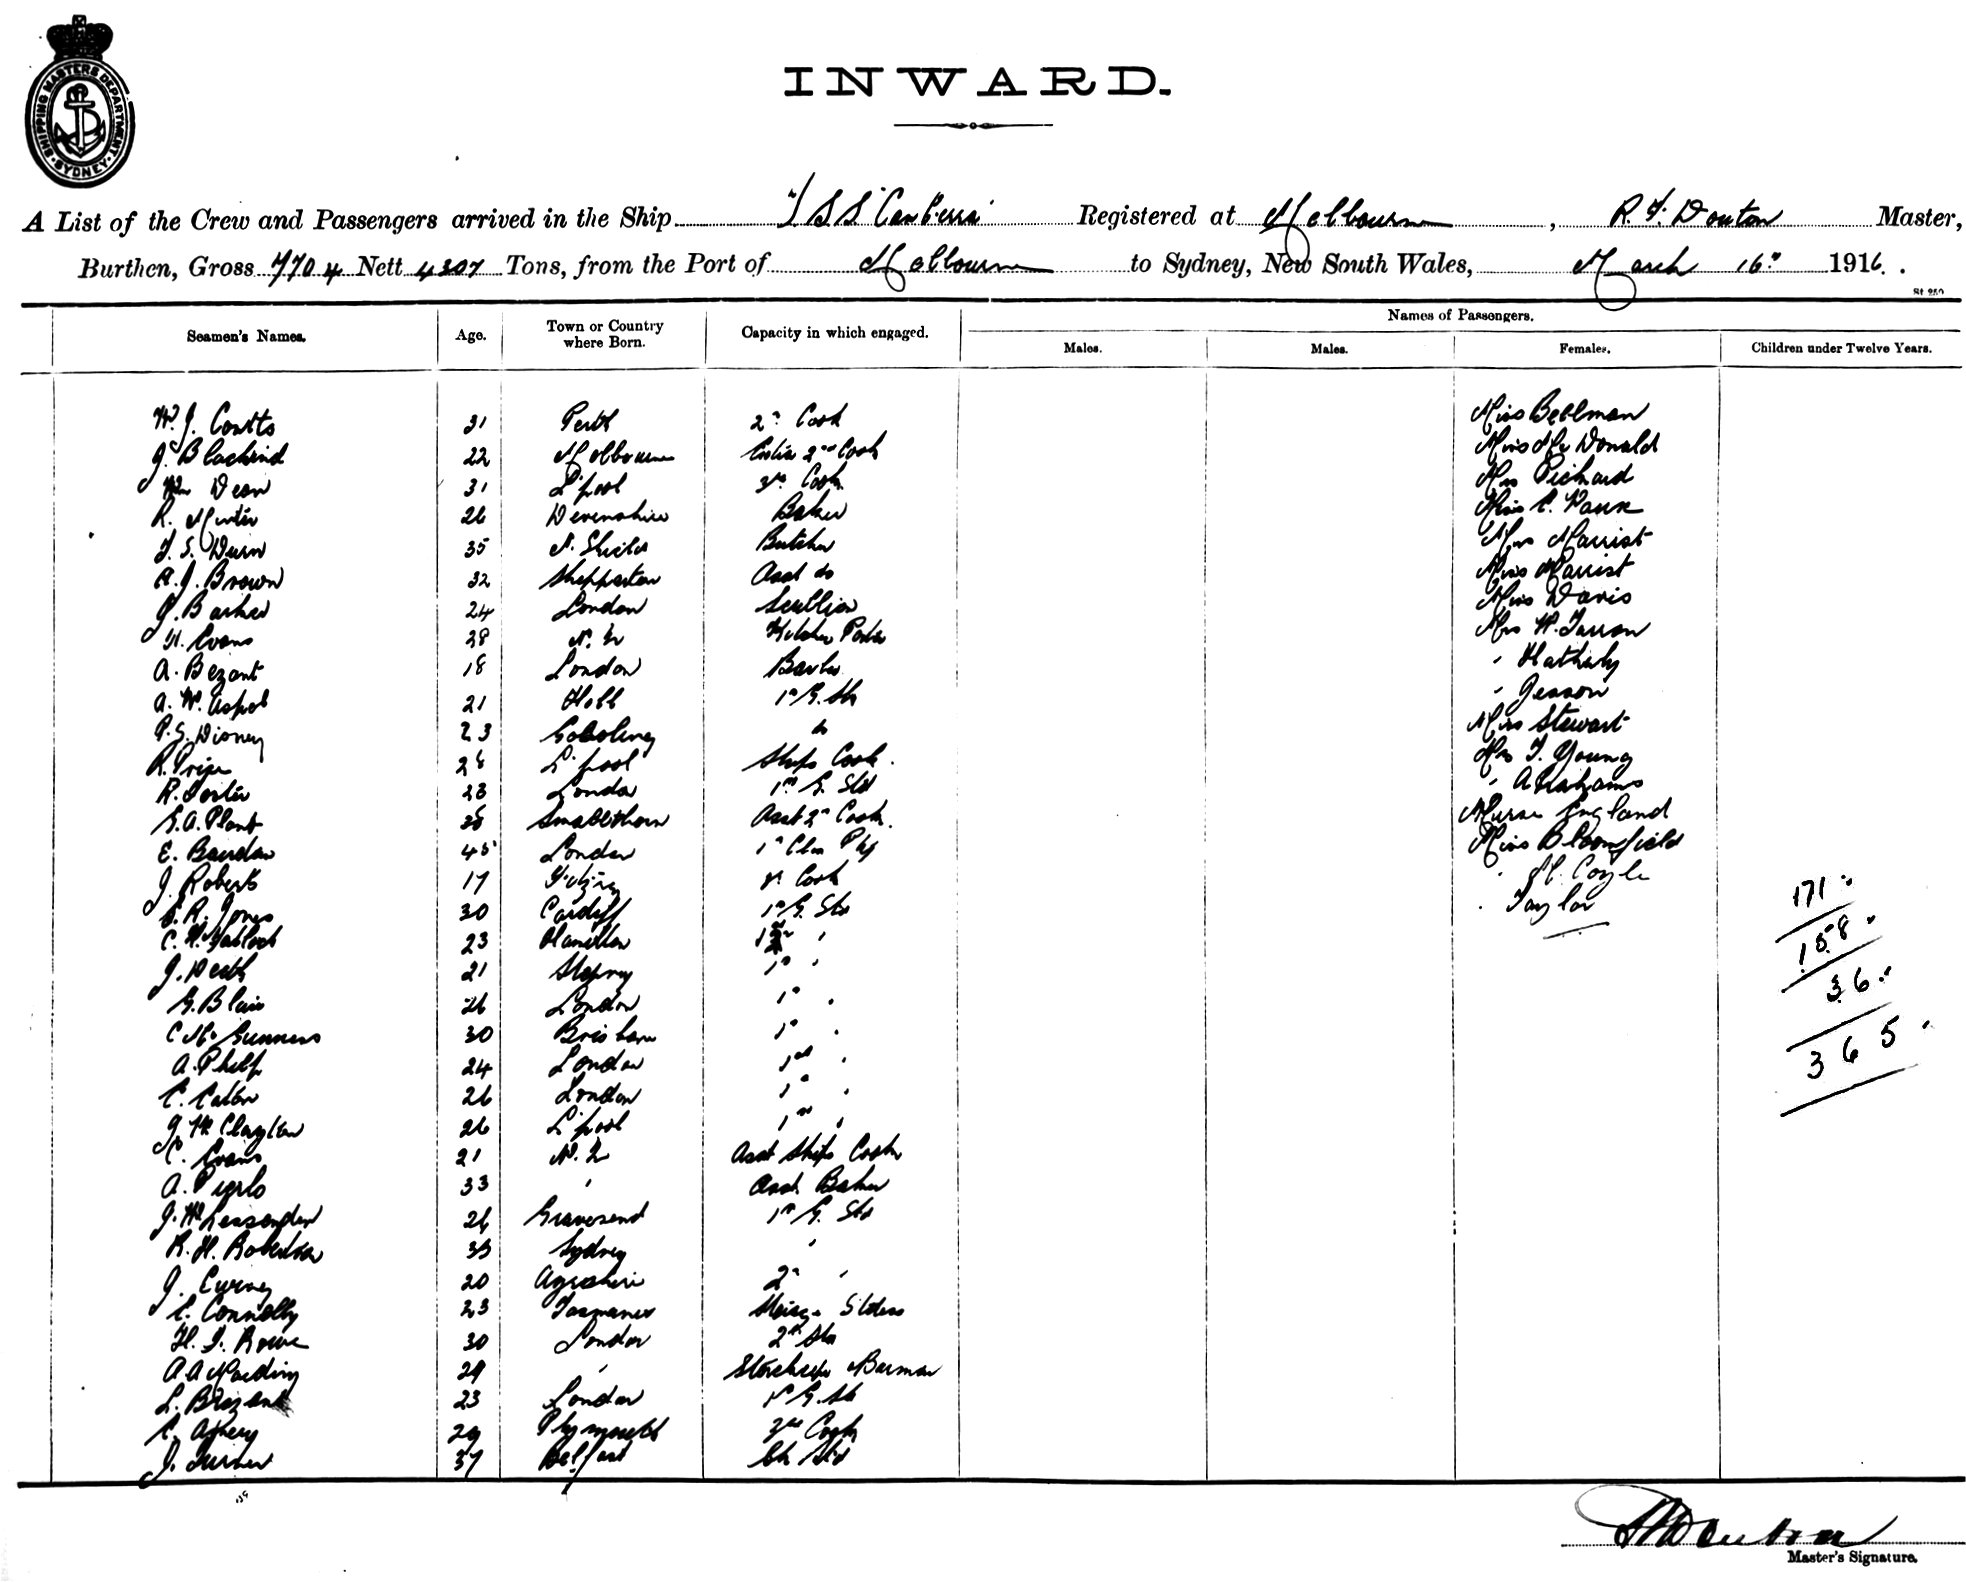 SHIPPING MASTERS DEPARTMENT. SYDNEY.
INWARD.
A List of the Crew and Passengers arrived in the Ship "T S S Canberra" Registered at Melbourne, R. F. Douton Master,
Burthen, Gross 7704 Nett 4307 Tons, from the Port of Melbourne to Sydney, New South Wales, March 16th 1916.
Seamen's Names. Age. Town or Country where Born. Capacity in which engaged. Names of Passengers.
Males. Males. Females. Children under Twelve Years.
W. J. Coutts 31 Perth 2nd Cook Miss Bellman
J. 22 Melbourne 2nd Cook Miss McDonald
Wm Dean 31 L'pool 3rd Cook Mrs Pichard
R. 26 Devonshire Baker Miss
T. S. Dunn 35 N. Shields Butcher Mrs Marrist
A. J. Brown 32 Shepparton Asst do Miss Marrist
J. Barker 24 London Scullion Miss Davis
H. Evans 28 N. Z Kitchen Porter Mrs W.
A. Bezant 18 London Barber " Hatherly
A. W. Aspel 21 1st G. Std " Jesson
P. G. Disney 23 do Miss Stewart
R. 28 L'pool Ships Cook. Mrs T. Young
R. 23 London 1st G. Std " Abrahams
G. A. Plant Asst 2nd Cook. Nurse England
E. 45 London 1st Clss Pky Miss Bloomfield
J. Roberts 17 Cook " M. Coyle
R. Jones 30 Cardiff 1st G. Std " Taylor
C. H. 23 Hamilton "
J. 21 Stepney 1st "
G. Blair 26 London 1st "
C McGunness 30 Brisbane 1st "
A. Philp 24 London 1st "
C. 26 London 1st "
J W Clayton 26 L'pool 1st "
C. Evans 21 N. Z Asst Ships Cook
A. 33 " Asst Baker
J. W. Lessenden 26 Gravesend 1st G. Std
R. H. Robertson Sydney "
J. Curney 20 Ayrshire 2nd "
C. Connolly 23 Tasmania
H. J. Rowe 30 London 2nd Std
A A Harding 29 " Storekeeper Barman
L. 23 London 1st G. Std
C. 29 Plymouth 3rd Cook
J. Turner 37 Belfast Ch Std
171
158
36
365
Master's Signature.